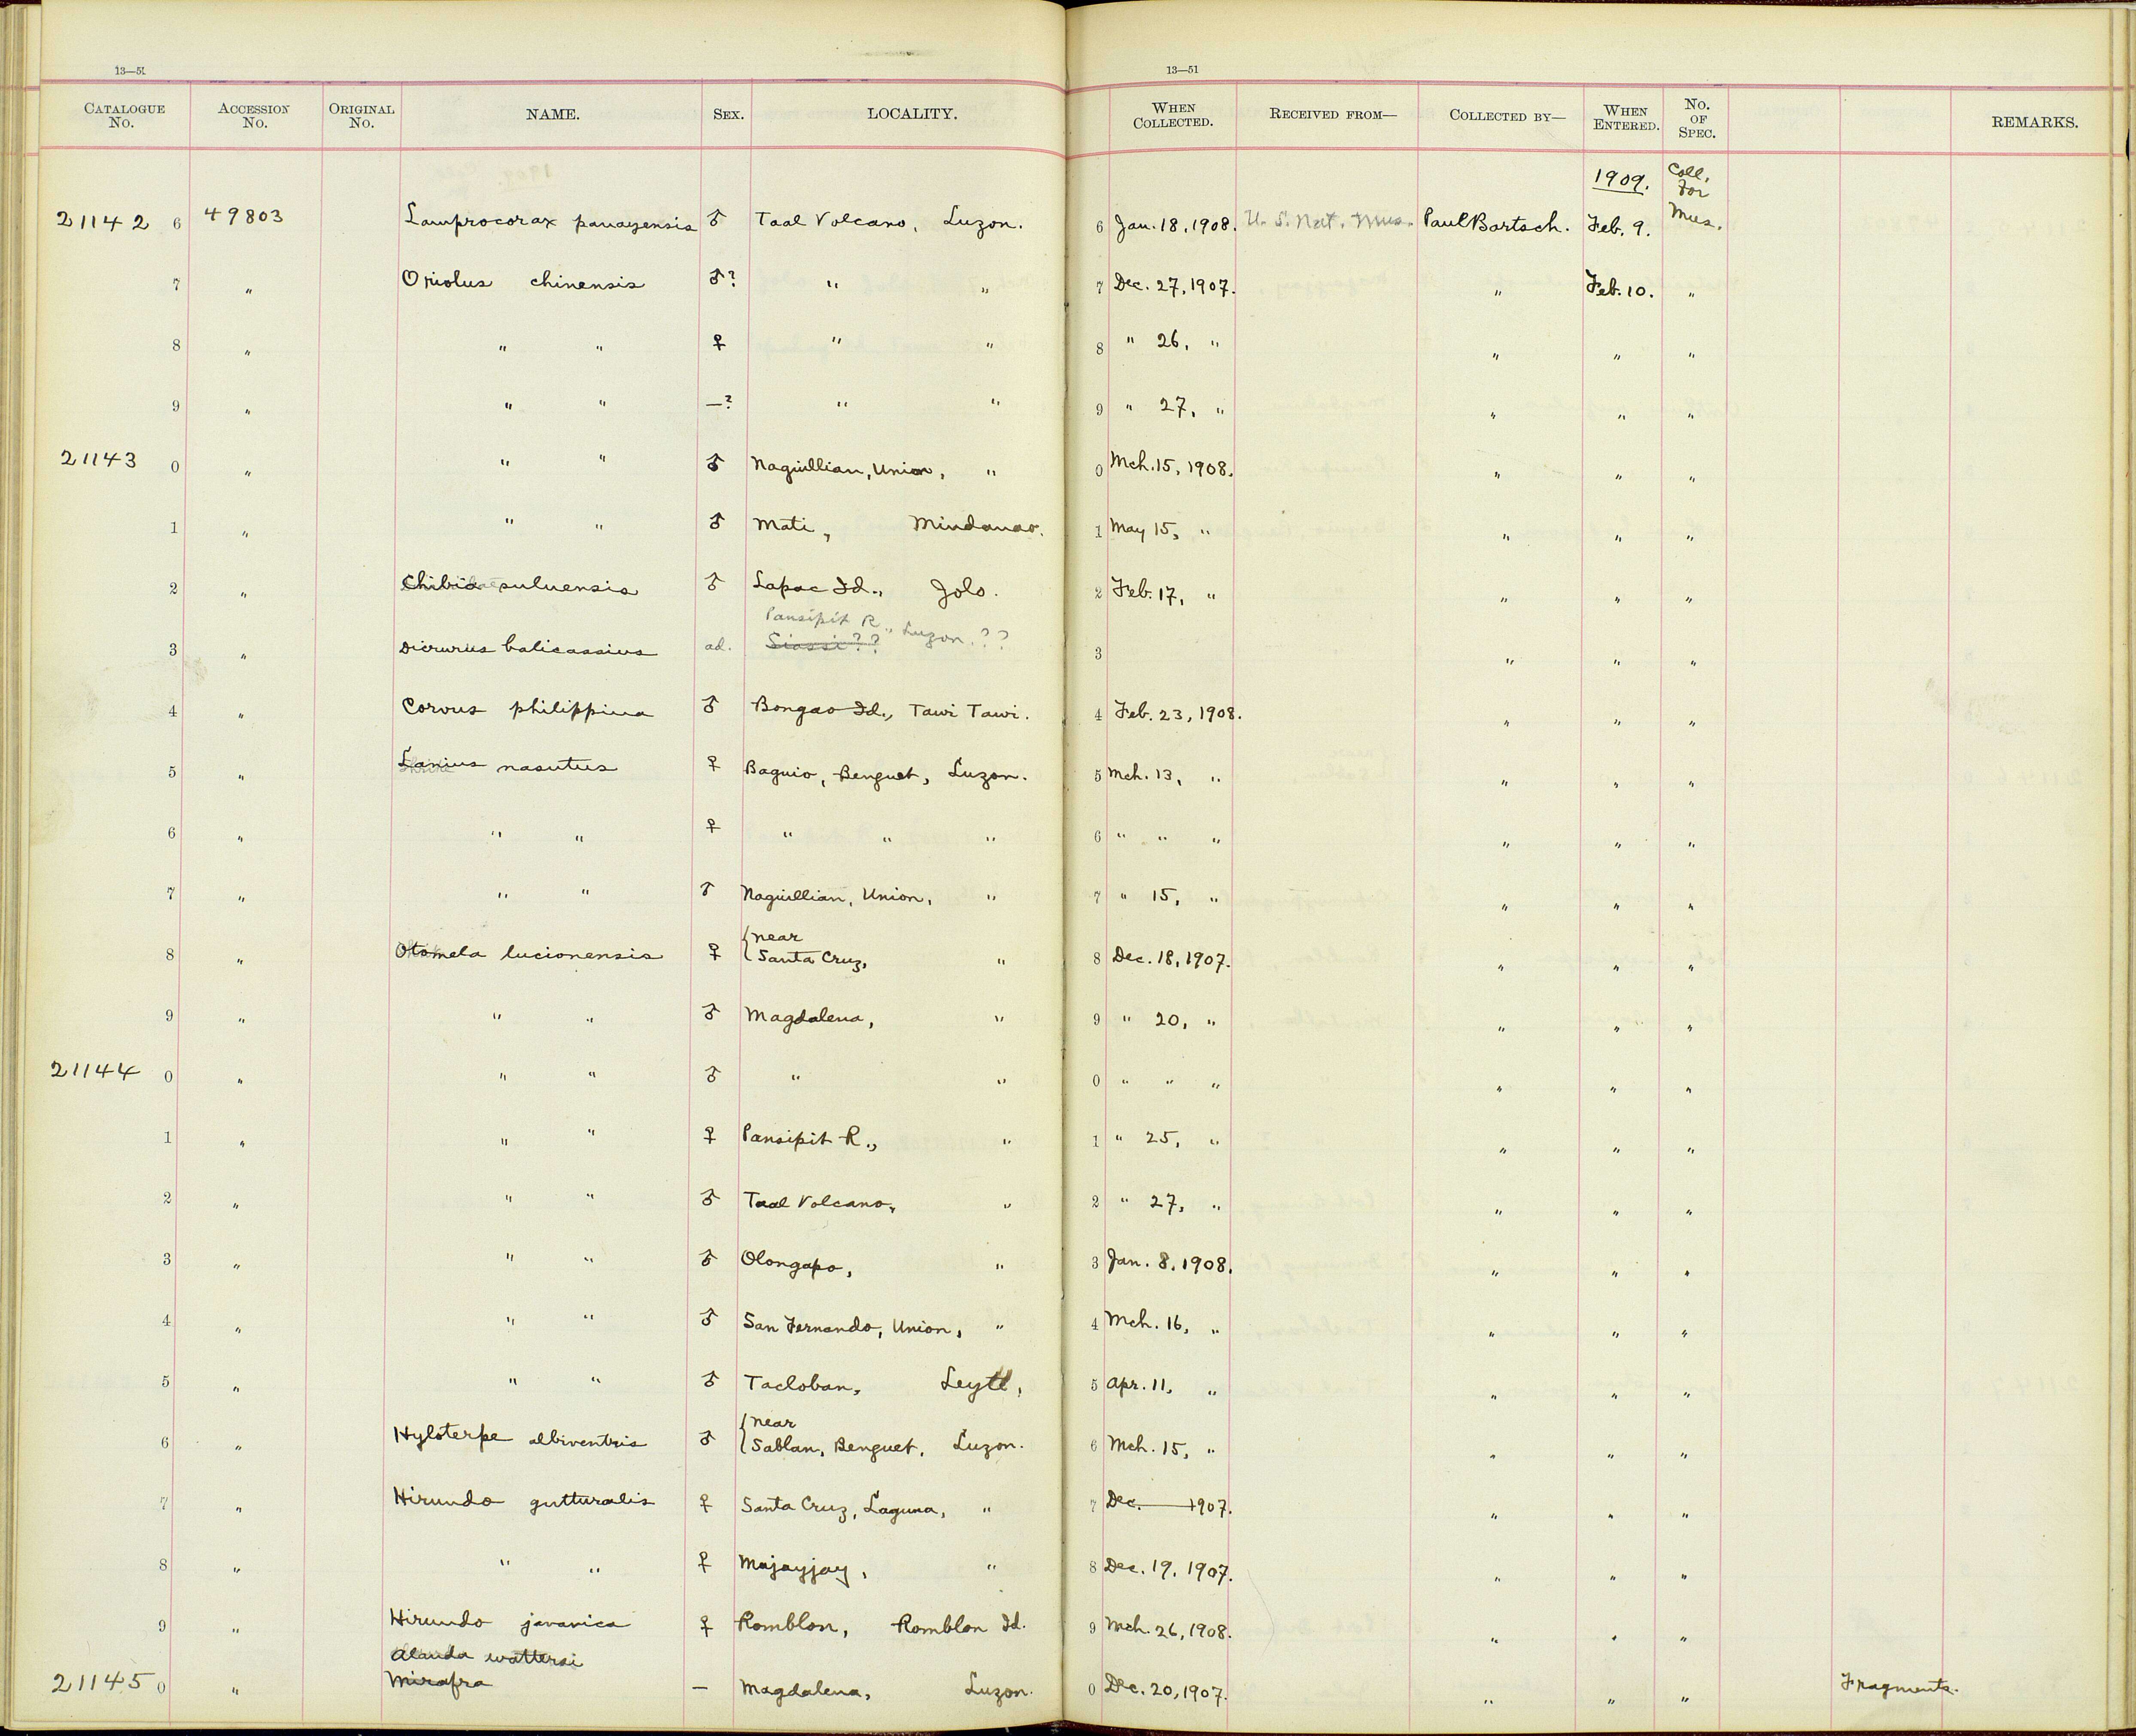 13—51 13—51
CATALOGUE No. ACCESSION No. ORIGINAL No. NAME. SEX. LOCALITY. WHEN COLLECTED. RECEIVED FROM— COLLECTED BY— WHEN ENTERED. No. OF SPEC. REMARKS.
1909. Coll. For Mus.
21142 6 49803 Lamprocorax panayensis ♂ Taal Volcano, Luzon. 6 Jan. 18, 1908. U. S. Nat. Mus. Paul Bartsch. Feb. 9.
7 " Oriolus chinensis ♂? " " 7 Dec. 27, 1907. " Feb. 10. "
8 " " " ♀ " " 8 " 26, " " " "
9 " " " —? " " 9 " 27, " " " "
21143 0 " " " ♂ Naguillian, Union, " 0 Mch. 15, 1908. " " "
1 " " " ♂ Mati, Mindanao. 1 May 15, " " " "
2 " Chibia suluensis ♂ Lapac Id., Jolo. 2 Feb. 17, " " " "
Pansipit R., Luzon.??
3 " Dicrurus balicassius ad. Siassi?? 3 " " "
4 " Corvus philippina ♂ Bongao Id., Tawi Tawi. 4 Feb. 23, 1908. " " "
5 " Lanius nasutus ♀ Baguio, Benguet, Luzon. 5 Mch. 13, " " " "
6 " " " ♀ " " " 6 " " " " " "
7 " " " ♂ Naguillian, Union, " 7 " 15, " " " "
8 " Otomela lucionensis ♀ { near Santa Cruz, " 8 Dec. 18, 1907. " " "
9 " " " ♂ Magdalena, " 9 " 20, " " " "
21144 0 " " " ♂ " " 0 " " " " " "
1 " " " ♀ Pansipit R., " 1 " 25, " " " "
2 " " " ♂ Taal Volcano, " 2 " 27, " " " "
3 " " " ♂ Olongapo, " 3 Jan. 8, 1908. " " "
4 " " " ♂ San Fernando, Union, " 4 Mch. 16, " " " "
5 " " " ♂ Tacloban, Leyte, 5 Apr. 11, " " " "
6 " Hyloterpe albiventris ♂ { near Sablan, Benguet, Luzon. 6 Mch. 15, " " " "
7 " Hirundo gutturalis ♀ Santa Cruz, Laguna, " 7 Dec. — 1907. " " "
8 " " " ♀ Majayjay, " 8 Dec. 19, 1907. " " "
9 " Hirundo javanica ♀ Romblon, Romblon Id. 9 Mch. 26, 1908. " " "
Alauda wattersi
21145 0 " Mirafra — Magdalena, Luzon. 0 Dec. 20, 1907. " " " Fragments.